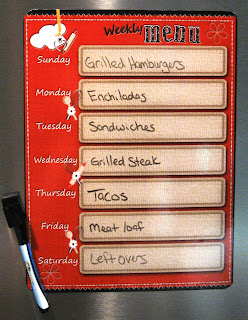 Weekly menu
Sunday Grilled Hamburgers
Monday Enchiladas
Tuesday Sandwiches
Wednesday Grilled Steak
Thursday Tacos
Friday Meat loaf
Saturday Left overs